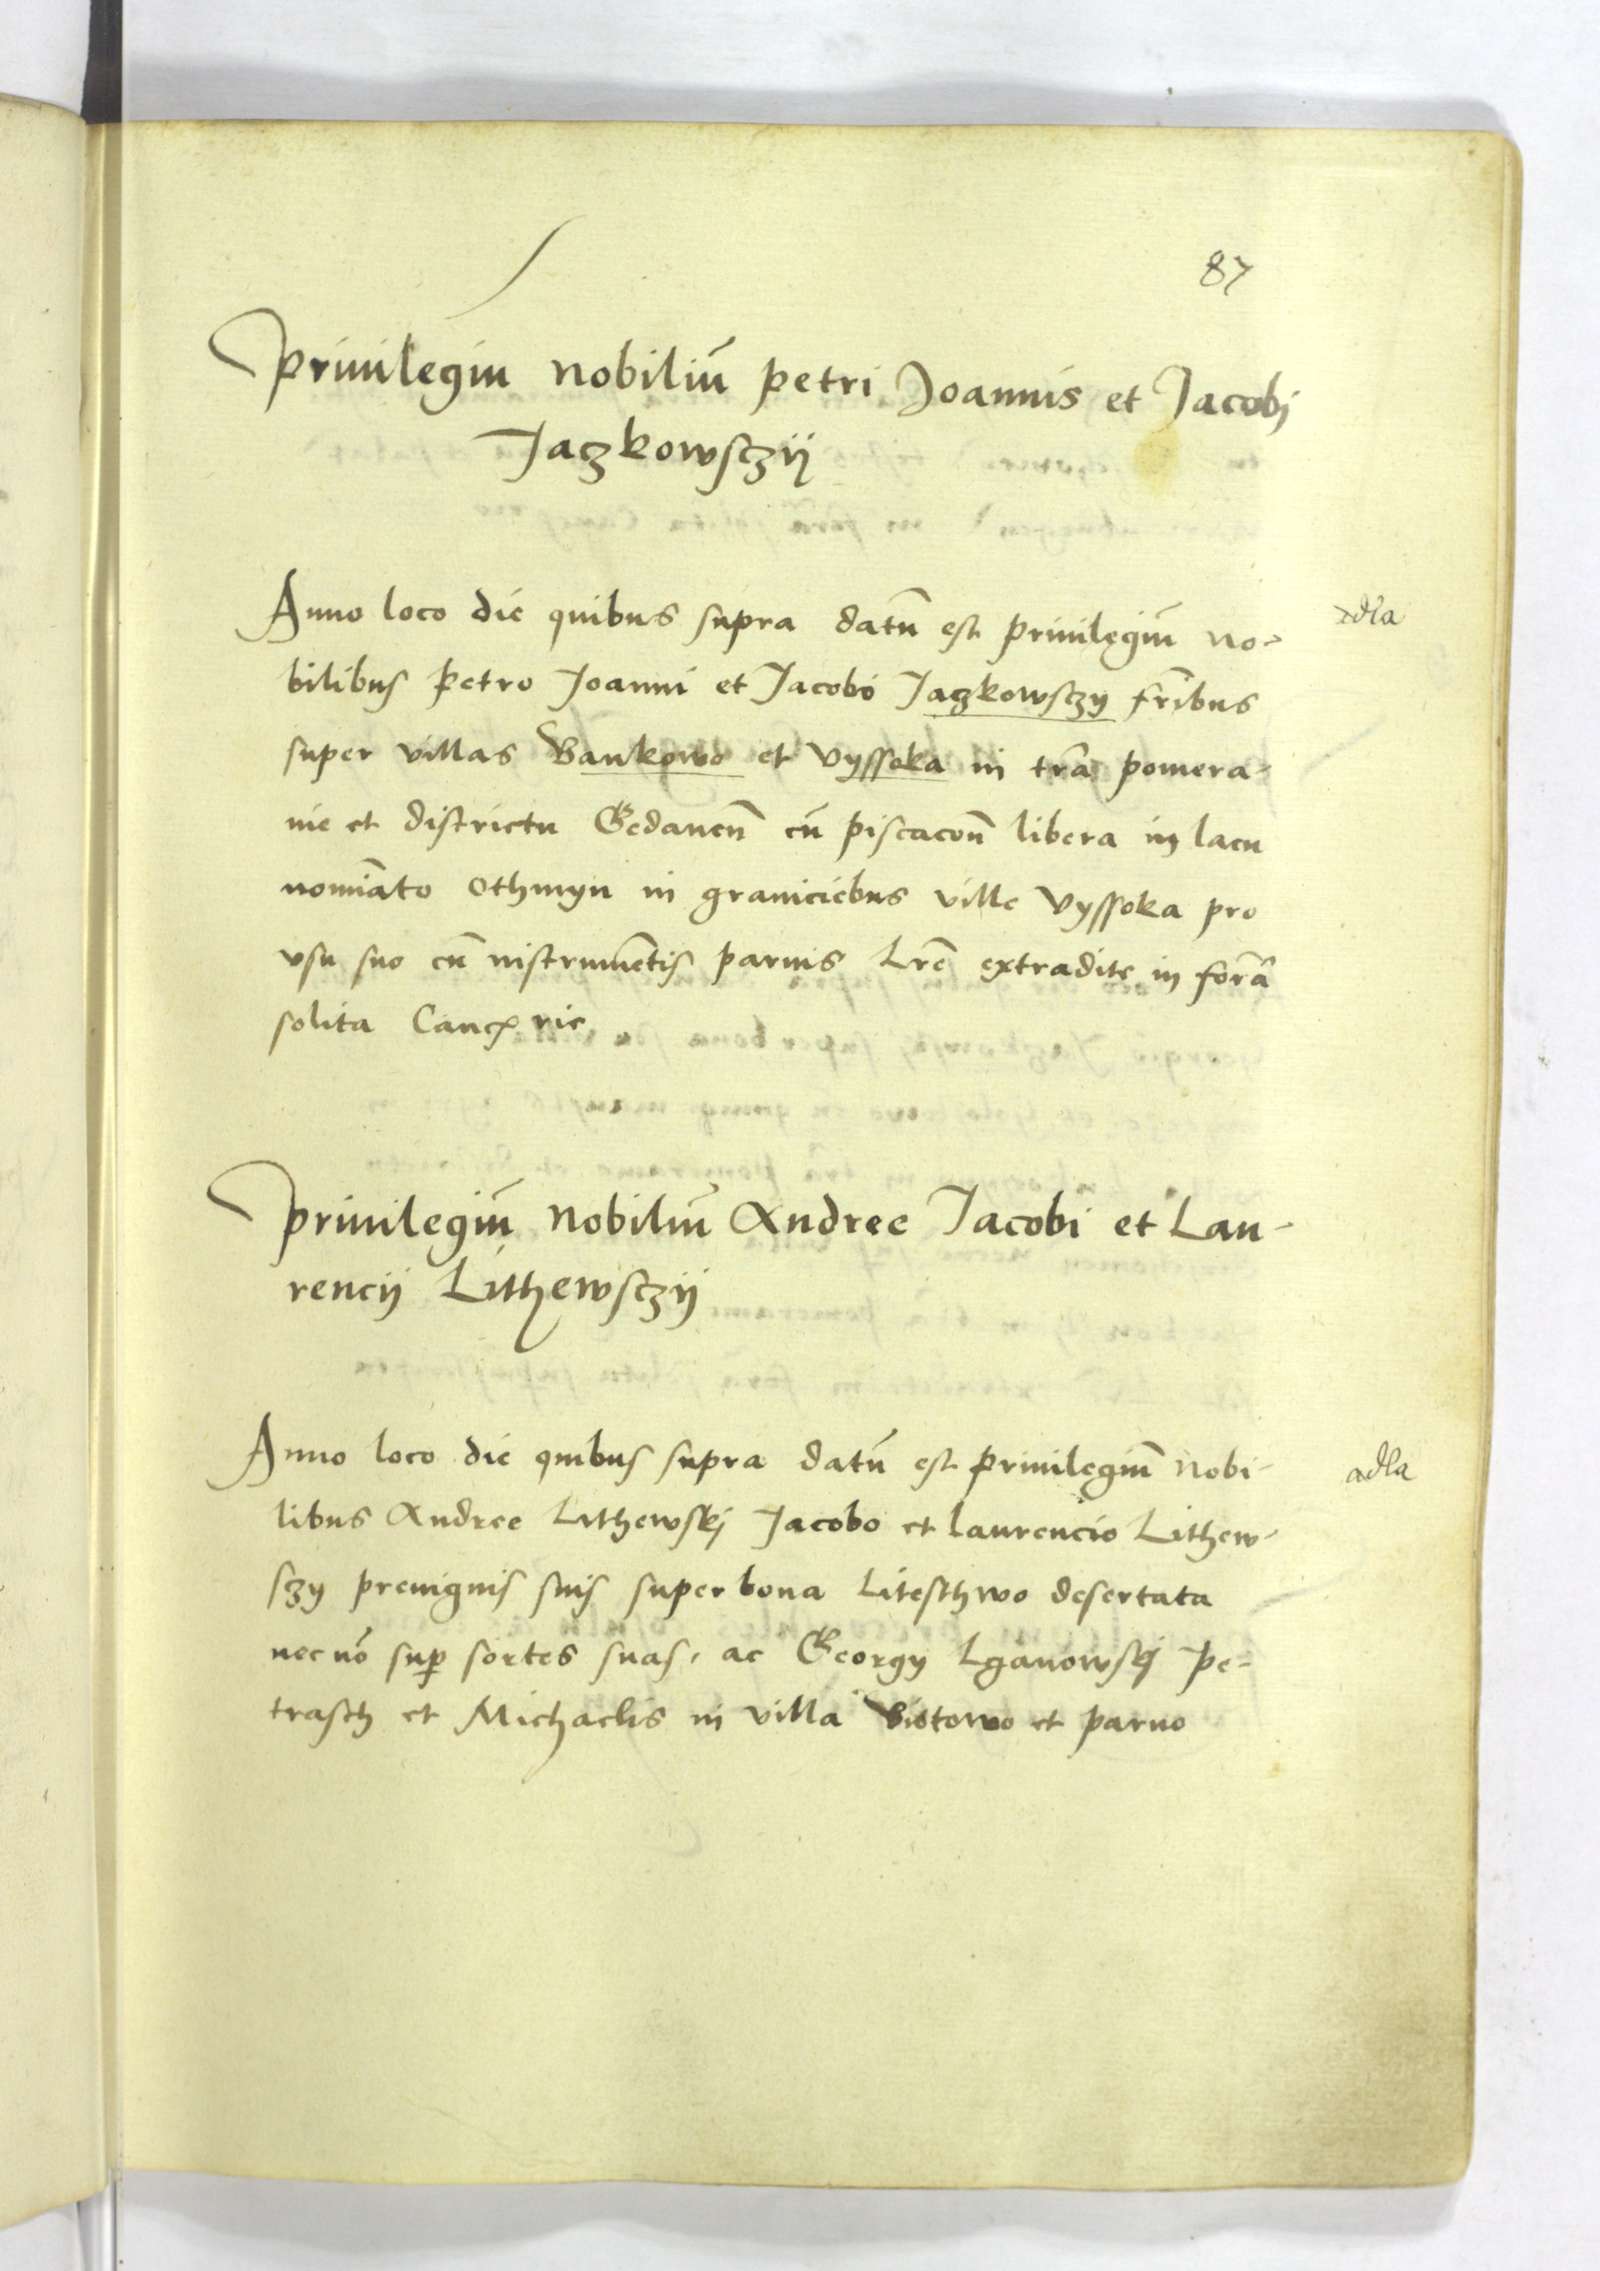 87
Privilegiu nobiliū Petri Joannis et Jacobi
Jaczkowsczij
Anno loco die quibus supra datū est privilegiū no-
adla
bilibus Petro Joanni et Jacobo Jaczkowsczy fr̄ibus
super villas Bankowo et Vyssoka in trā Pomera-
nie et districtu Gedanen̄ cū piscacōn libera in lacu
nomīato Othmyn in graniciebus ville Vyssoka pro
vsu suo cū instrumētis parvis Lrē extradite in formā
solita Canc rie
Privilegiū nobiliū Andree Jacobi et Lau-
rencij Lithewsczij
Anno loco die quibus supra datū est privilegiū nobi-
adla
libus Andree Lithewskj Jacobo et Laurencio Lithew-
szy prevignis suis super bona Liteschwo desertata
necnō sup sortes suas, ac Georgy Lganowskj Pe-
trasch et Michaelis in villa Bistowo et parvo